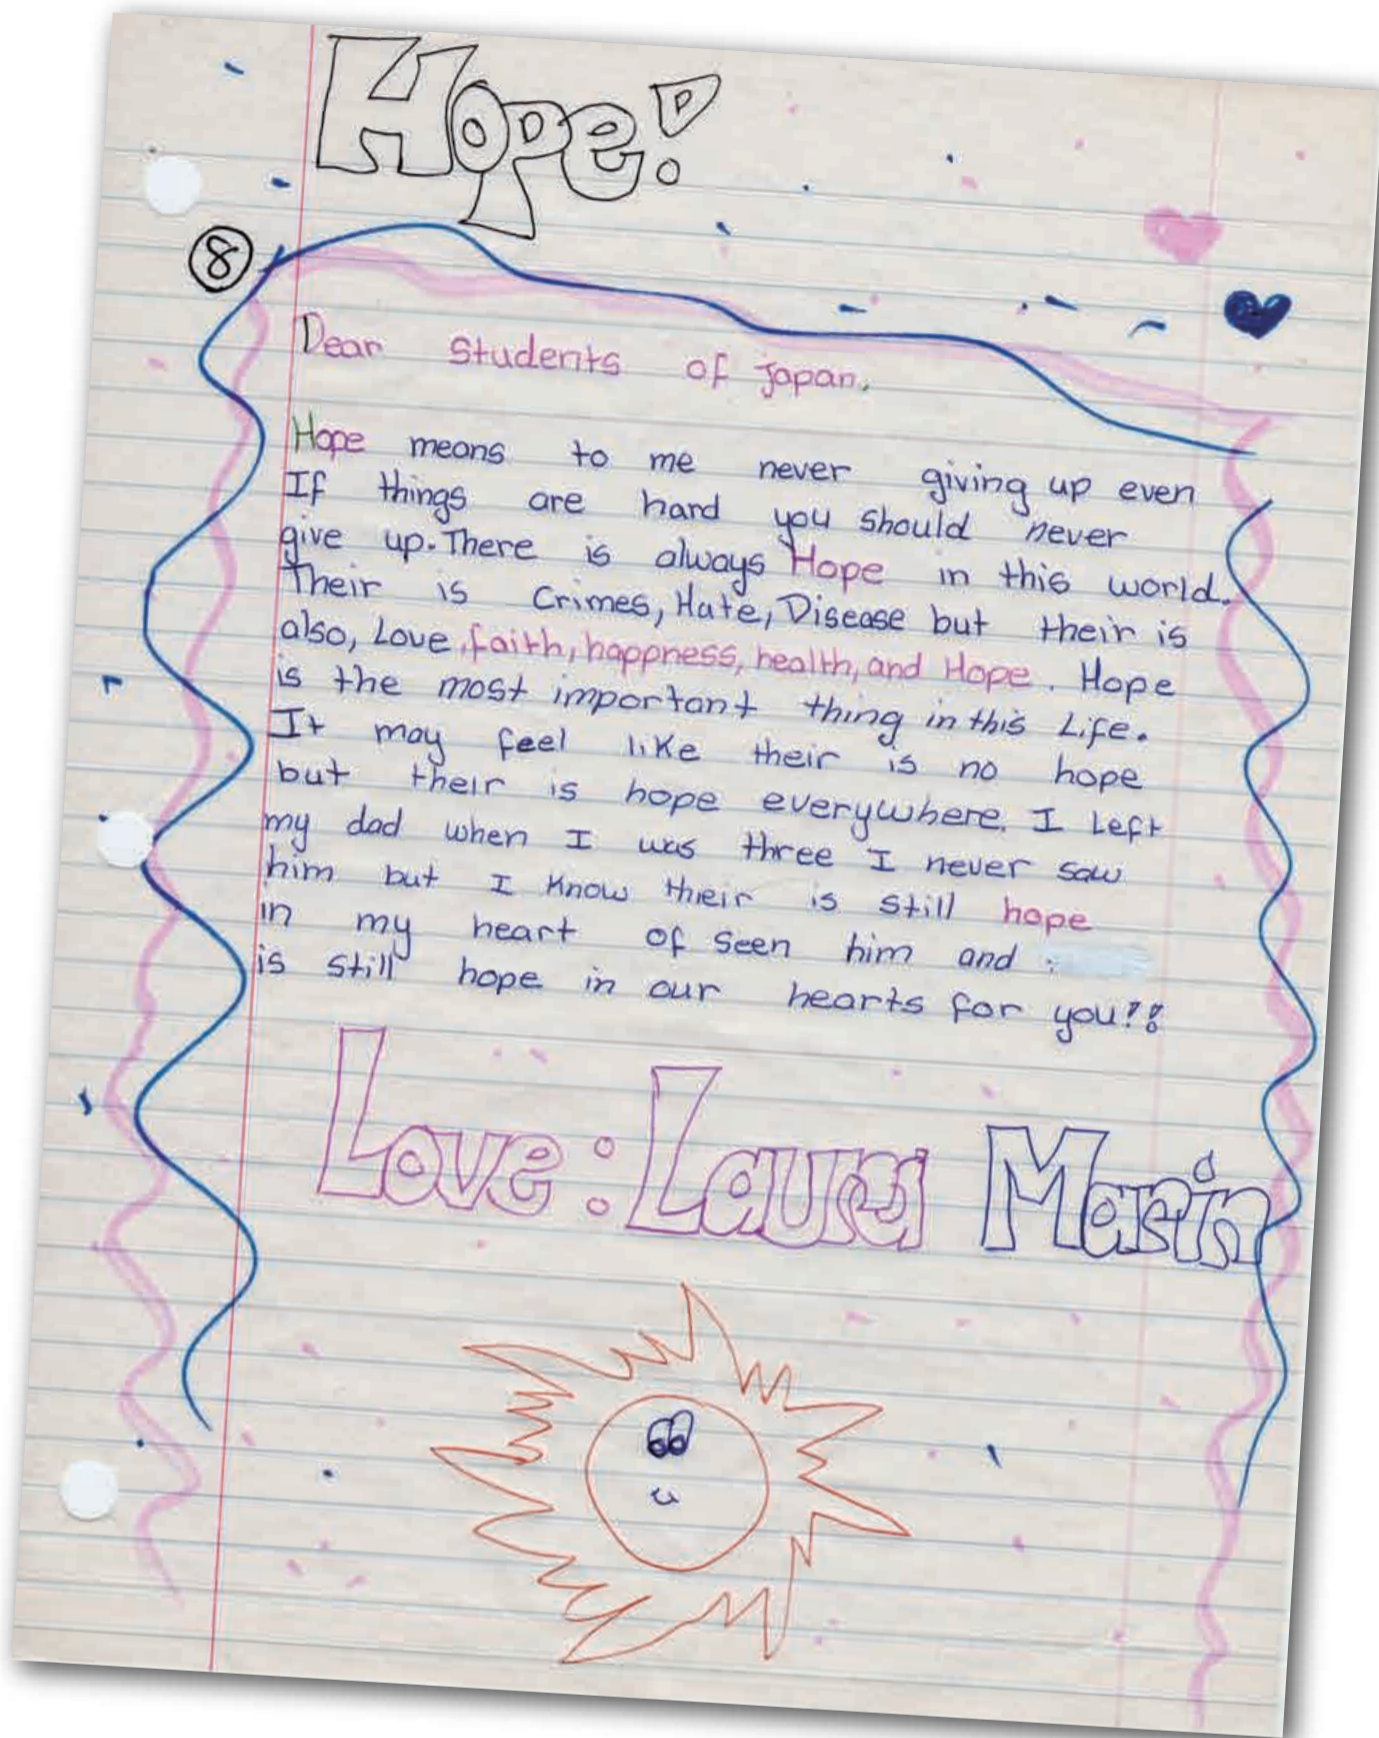 Hope!
8
Dear students of Japan,
Hope means to me never giving up even
If things are hard you should never
give up. There is always Hope in this world.
Their is Crimes, Hate, Disease but their is
also, Love, faith, happness, health, and Hope. Hope
is the most important thing in this Life.
It may feel like their is no hope
but their is hope everywhere. I Left
my dad when I was three I never saw
him but I know their is still hope
in my heart of seen him and
is still hope in our hearts for you!!
Love: Laura Marin